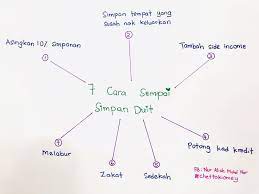 7 Cara Sempoi
Simpan Duit
1
Asingkan 10% simpanan
2
Simpan tempat yang
susah nak keluarkan
3
Tambah side income
4
Potong kad kredit
5
Sedekah
6
Zakat
7
Melabur
FB: Nur Aliah Mohd Nor